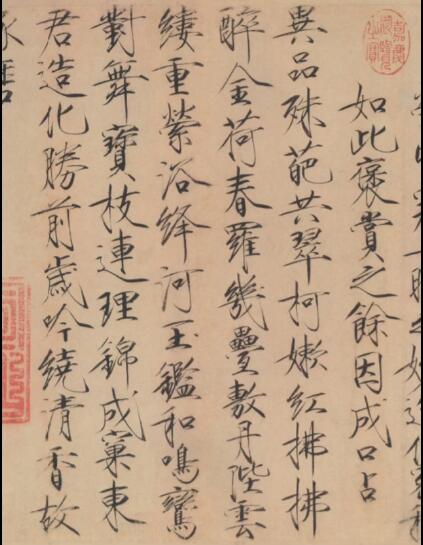 如此褒賞之餘因成口占
異品殊葩共翠柯嫩紅拂拂
醉金荷春羅幾疊敷丹陛雲
縷重縈浴絳河玉鑑和鳴鸞
對舞寶枝連理錦成窠東
君造化勝前歲吟繞清香故
嘉慶御覽之寶